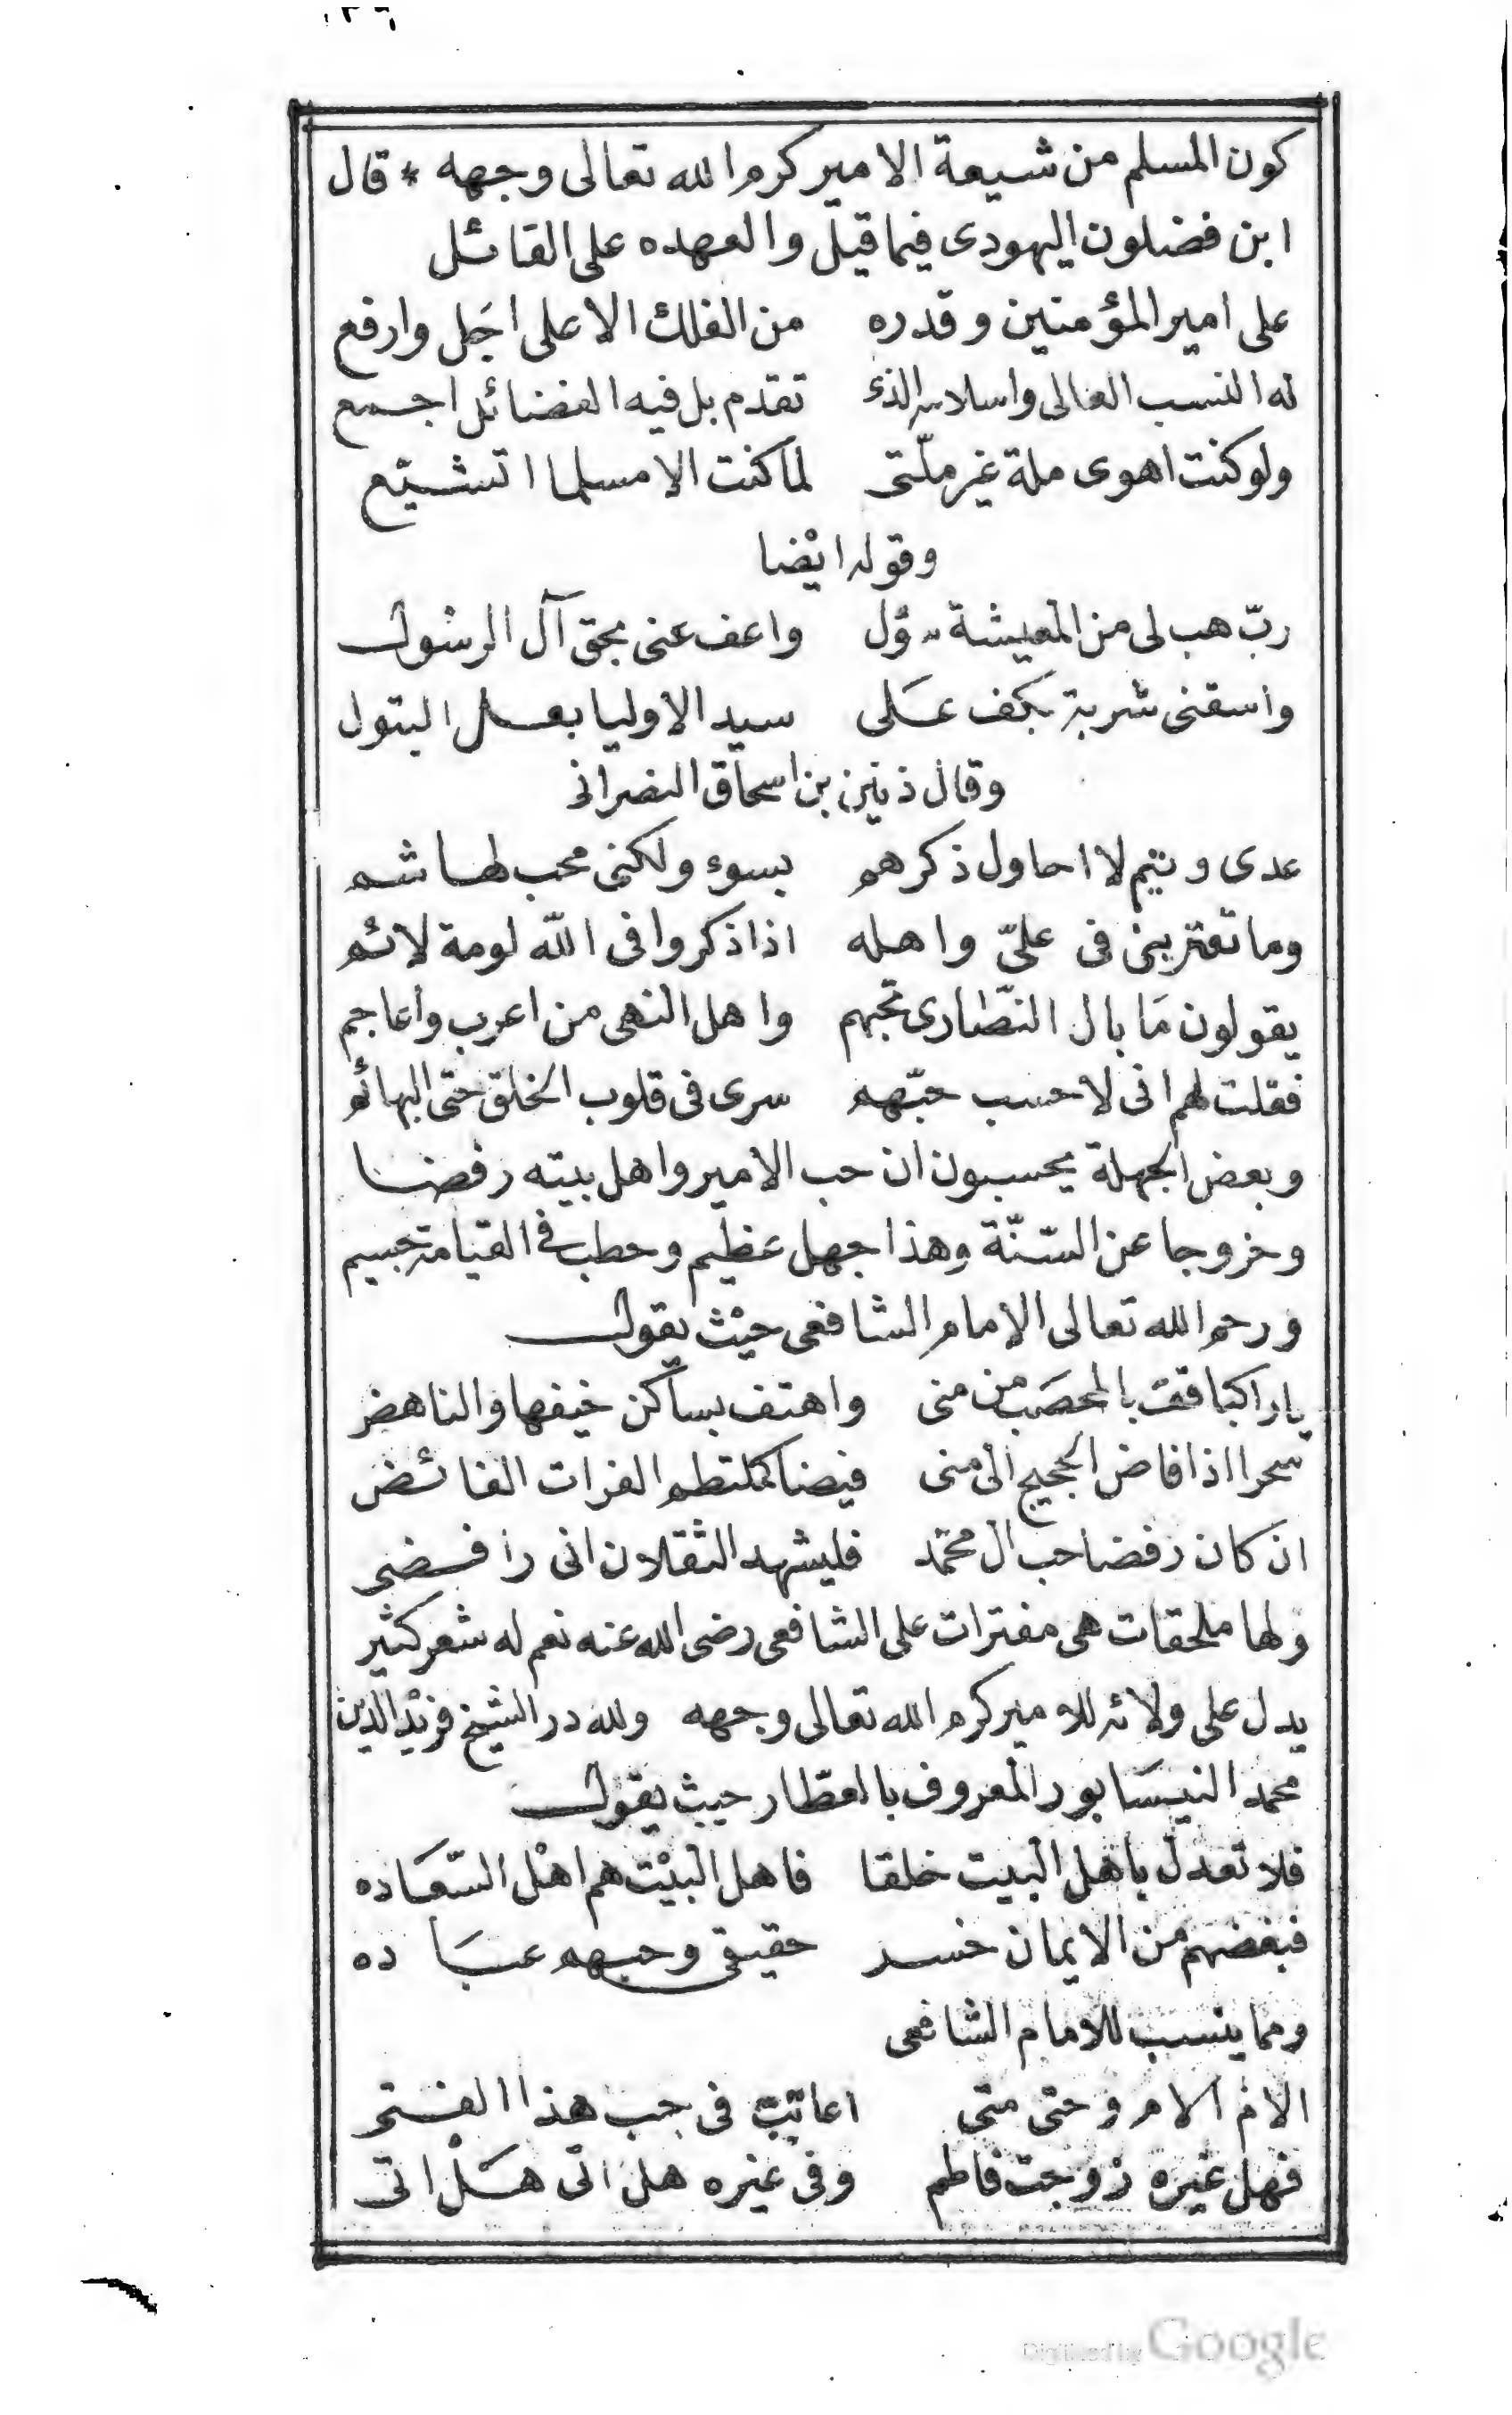 كون المسلم من شيعة الامير كرم الله تعالى وجهه * قال
ابن فضلون اليهودى فيما قيل والعهده على القائل
على امير المؤمنين وقدره من الفلك الاعلى اجَل وارفع
له النسب العالى واسلامه الذى تقدم بل فيه الفضائل اجمع
ولو كنت اهوى ملة غير ملّتى لما كنت الا مسلما اتشيّع
وقوله ايْضا
ربّ هب لى من المعيشة سؤل واعف عنى بحق آل الرسُول
واسقنى شربة بكف عَلى سيد الاوليا بعل البتول
وقال بن اسحاق النصرانى
عدى وتيم لا احاول ذكرهم بسوء ولكنى محب لهاشم
وما تعترينى فى علىّ واهله اذا ذكروا فى الله لومة لائم
يقولون مَا بال النّصارى تحبهم واهل النهى من اعرب واعاجم
فقلت لهم انى لاحسب حبّهم سرى فى قلوب الخلق حتى البهائم
وبعض الجهلة يحسبون ان حب الامير واهل بيته رفضا
وخروجا عن السّنّة وهذا جهل عظيم وخطب فى القيامة جسيم
ورحم الله تعالى الامام الشافعى حيْث يقول
يا راكبا قف بالمحصَب من منى واهتف بساكن خيفها والناهض
سحرا اذا فاض الحجيج الى منى فيضا كملتطم الفرات الفائض
ان كان رفضا حب ال محمّد فليشهد الثقلان انى رافضى
ولها ملحقات هى مفترات على الشافعى رضى الله عنه نعم له شعر كثير
يدل على ولائه للامير كرم الله تعالى وجهه ولله در الشيخ فريْد الدين
محمد النيسَابور المعروف بالعطّار حيث يقول
فلا تعدل باهل البيت خلقا فاهل البيْت هم اهْل السّعَاده
فبغضهم من الايمان خسر حقيقى وحبهم عبَاده
ومما ينسب للامام الشافعى
الام الام وحتى متى اعاتَب فى حب هذا الفتى
فهل غيره زوجت فاطم وفى غيره هل اتى هَلْ اتى
Digitized by Google